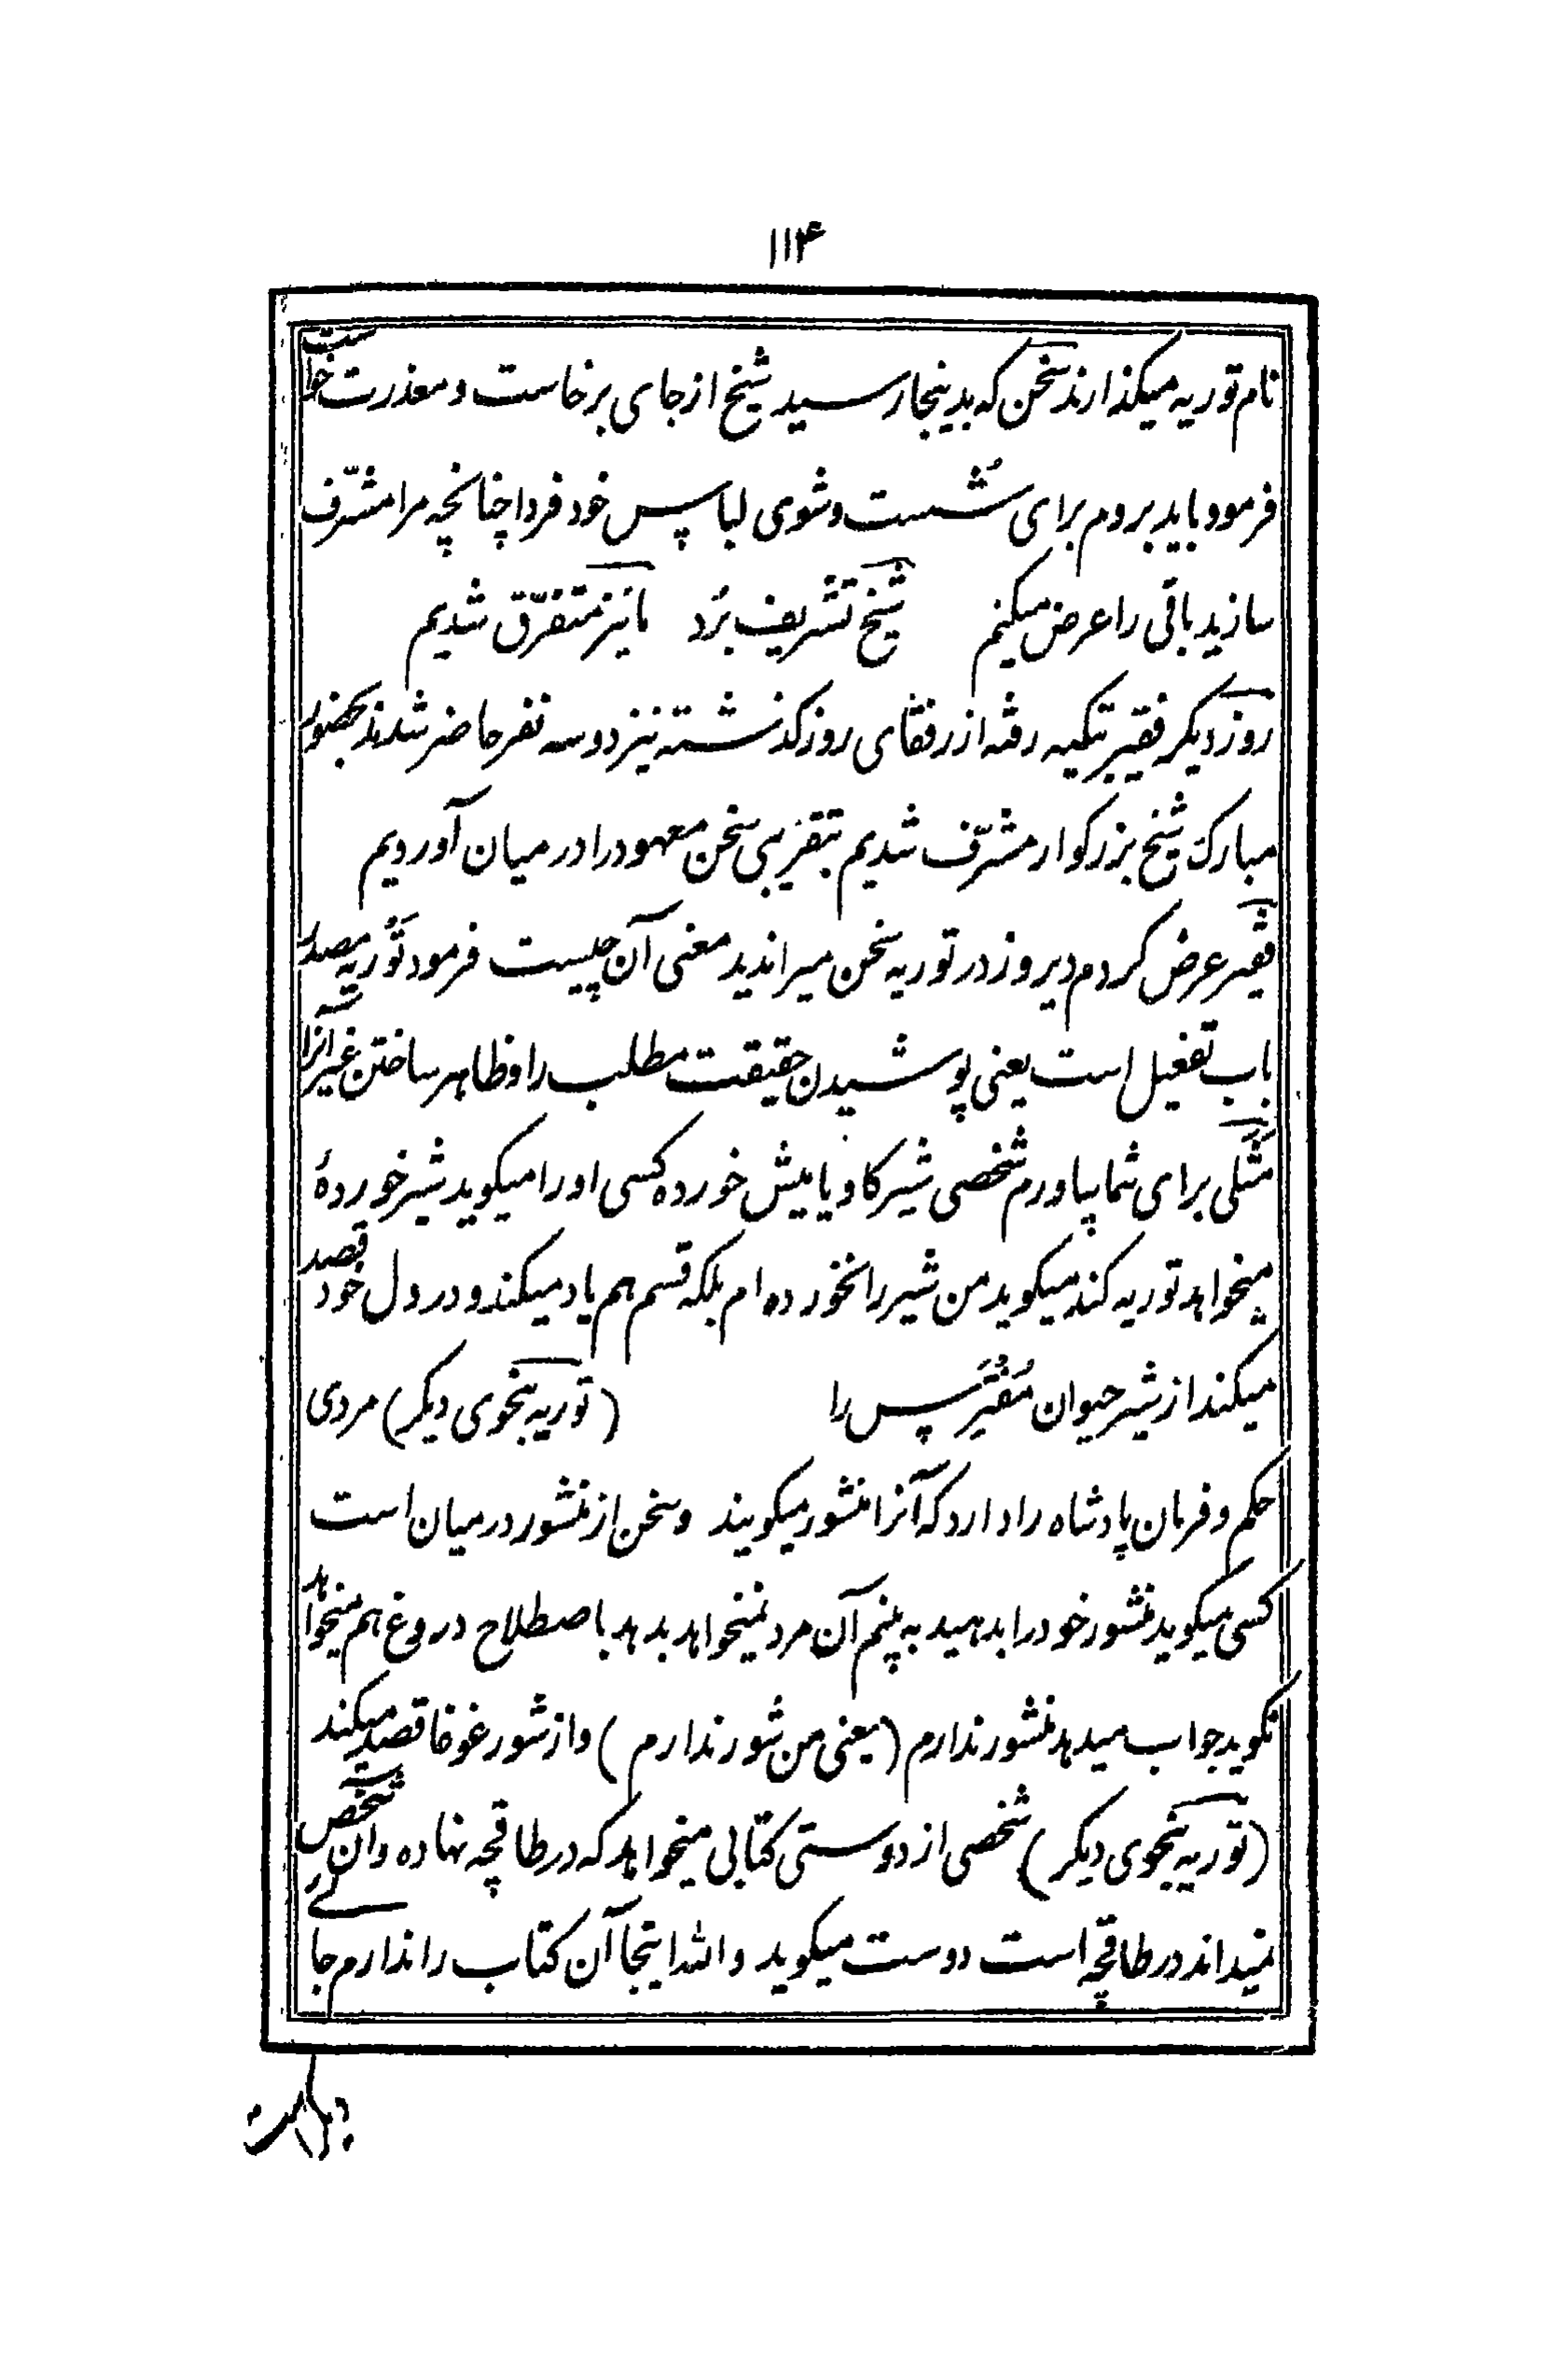 ۱۱۴
نام توریه میکذارند سخن که بدینجا رسید شیخ از جای برخاست و معذرت خواست
فرمود باید بروم برای شُست و شوی لباس خود فردا چنانچه مرا مشرّف
سازید باقی را عرض میکنم شیخ تشریف بُرد ما نیز متفرّق شدیم
روز دیکر فقیر بتکیه رفته از رفقای روز کذشته نیز دو سه نفر حاضر شدند بحضور
مبارک شیخ بزرکوار مشرّف شدیم بتقریبی سخن معهود را در میان آوردیم
فقیر عرض کردم دیروز در توریه سخن میراندید معنی آن چیست فرمود تَوریه مصدر
باب تفعیل است یعنی پوشیدن حقیقت مطلب را و ظاهر ساختن غیر آنرا
مَثَلی برای شما بیاورم شخصی شیر کاو یا میش خورده کسی او را میکوید شیر خوردهٔ
میخواهد توریه کند میکوید من شیر را نخورده ام بلکه قسم هم یاد میکند و در دل خود قصد
میکند از شیر حیوان مُفتَرِس را (توریه بنحوی دیکر) مردی
حکم و فرمان پادشاه را دارد که آنرا منشور میکویند و سخن از منشور در میان است
کسی میکوید منشور خود را بدهید به بینم آن مرد نمیخواهد بدهد باصطلاح دروغ هم نمیخواهد
نکوید جواب میدهد منشور ندارم (یعنی من شور ندارم) و از شور غوغا قصد میکند
(توریه بنحوی دیکر) شخصی از دوستی کتابی میخواهد که در طاقچه نهاده و آن شخص
نمیداند در طاقچه است دوست میکوید والله اینجا آن کتاب را ندارم جا